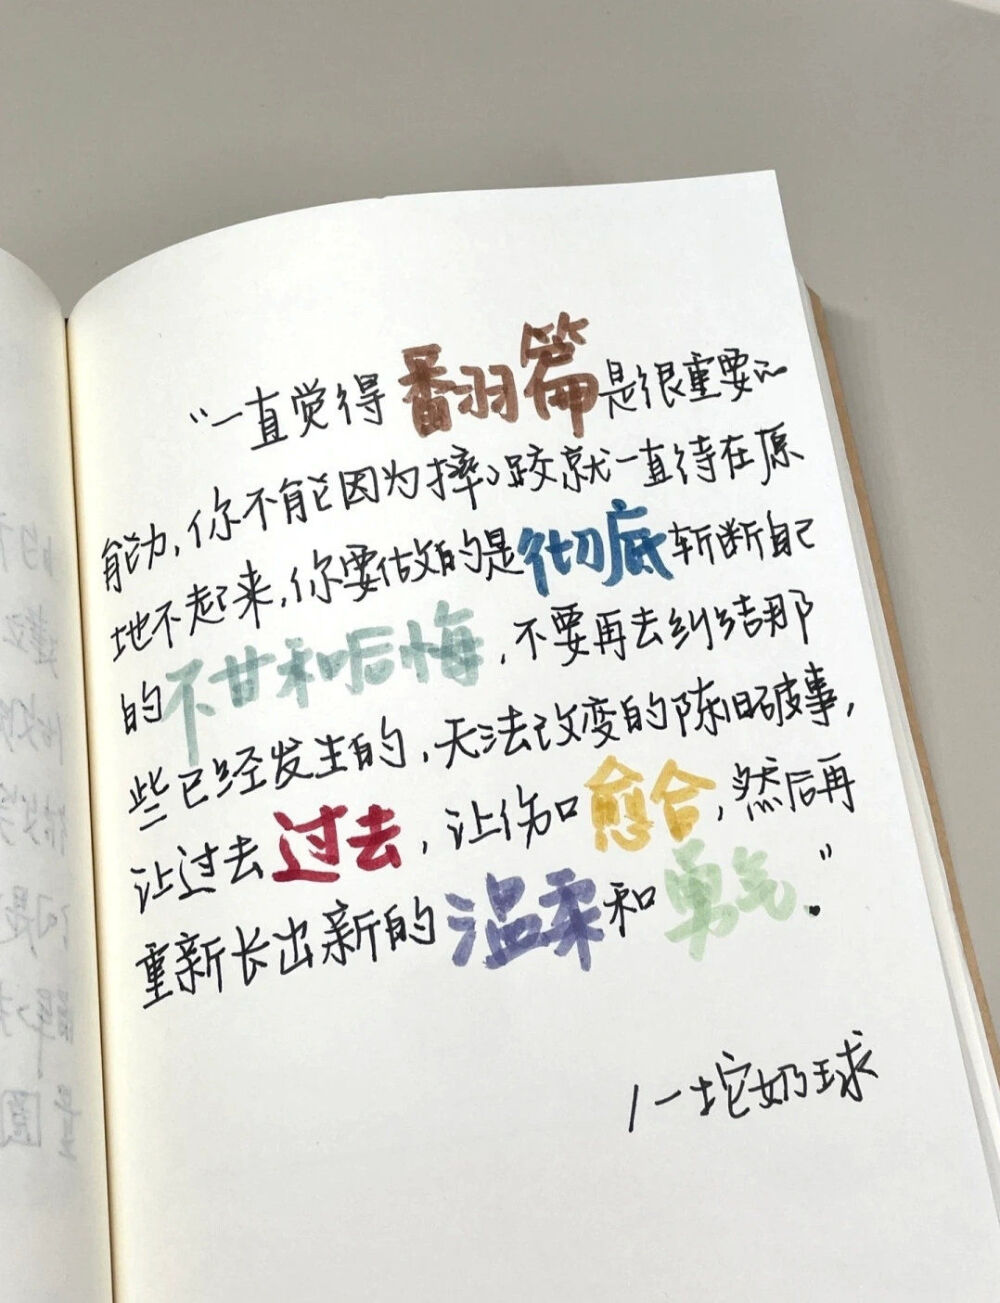 “一直觉得翻篇是很重要的
能力,你不能因为摔跤就一直待在原
地不起来,你要做的是彻底斩断自己
的不甘和后悔,不要再去纠结那
些已经发生的,无法改变的陈旧破事,
让过去过去,让伤口愈合,然后再
重新长出新的温柔和勇气.”
/一坨奶球